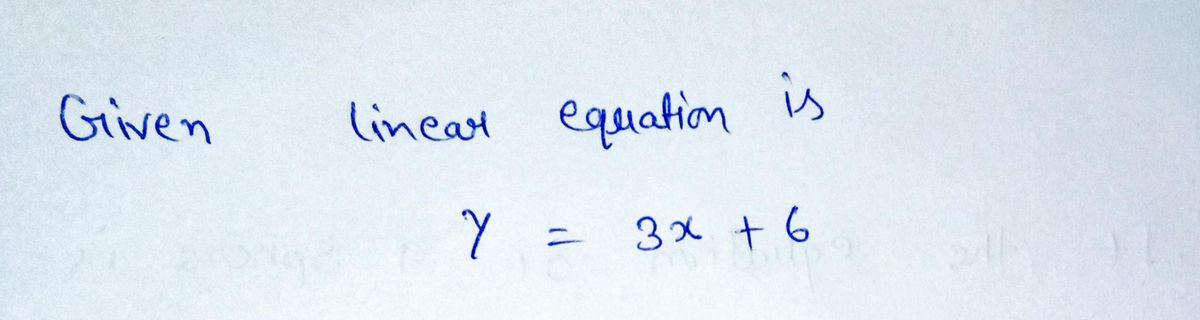 Given linear equation is
y = 3x + 6